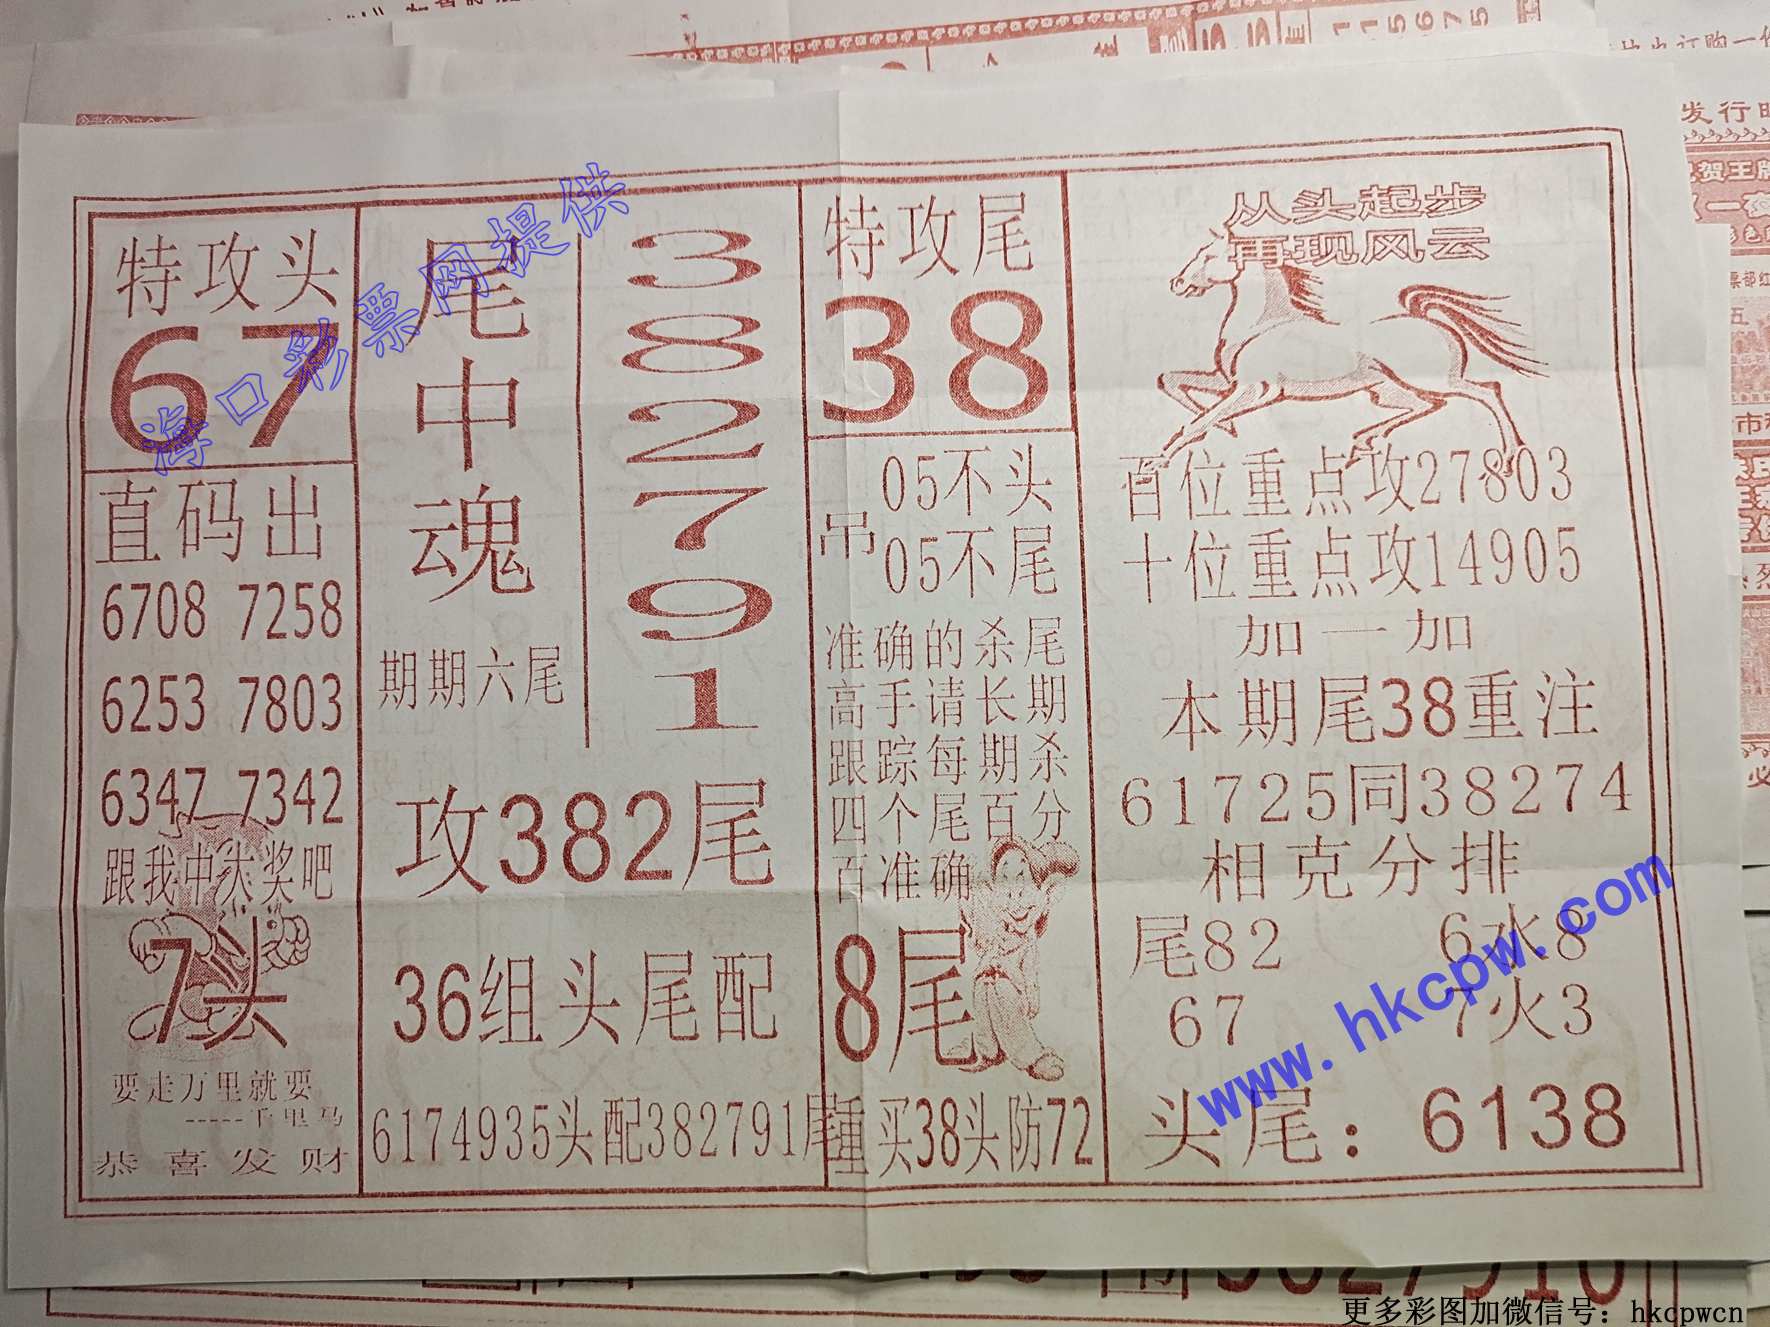 特攻头
67
直码出
6708 7258
6253 7803
6347 7342
跟我中大奖吧
7头
要走万里就要
-----千里马
恭喜发财
尾中魂
期期六尾
3
8
2
7
9
1
攻382尾
36组头尾配
6174935头配382791尾
特攻尾
38
吊
05不头
05不尾
准确的杀尾
高手请长期
跟踪每期杀
四个尾百分
百准确
8尾
重买38头防72
从头起步
再现风云
百位重点攻27803
十位重点攻14905
加一加
本期尾38重注
61725同38274
相克分排
尾82 6水8
67 7火3
头尾：6138
海口彩票网提供
www.hkcpw.com
更多彩图加微信号：hkcpwcn
115675
订购一份
发行
贺王牌